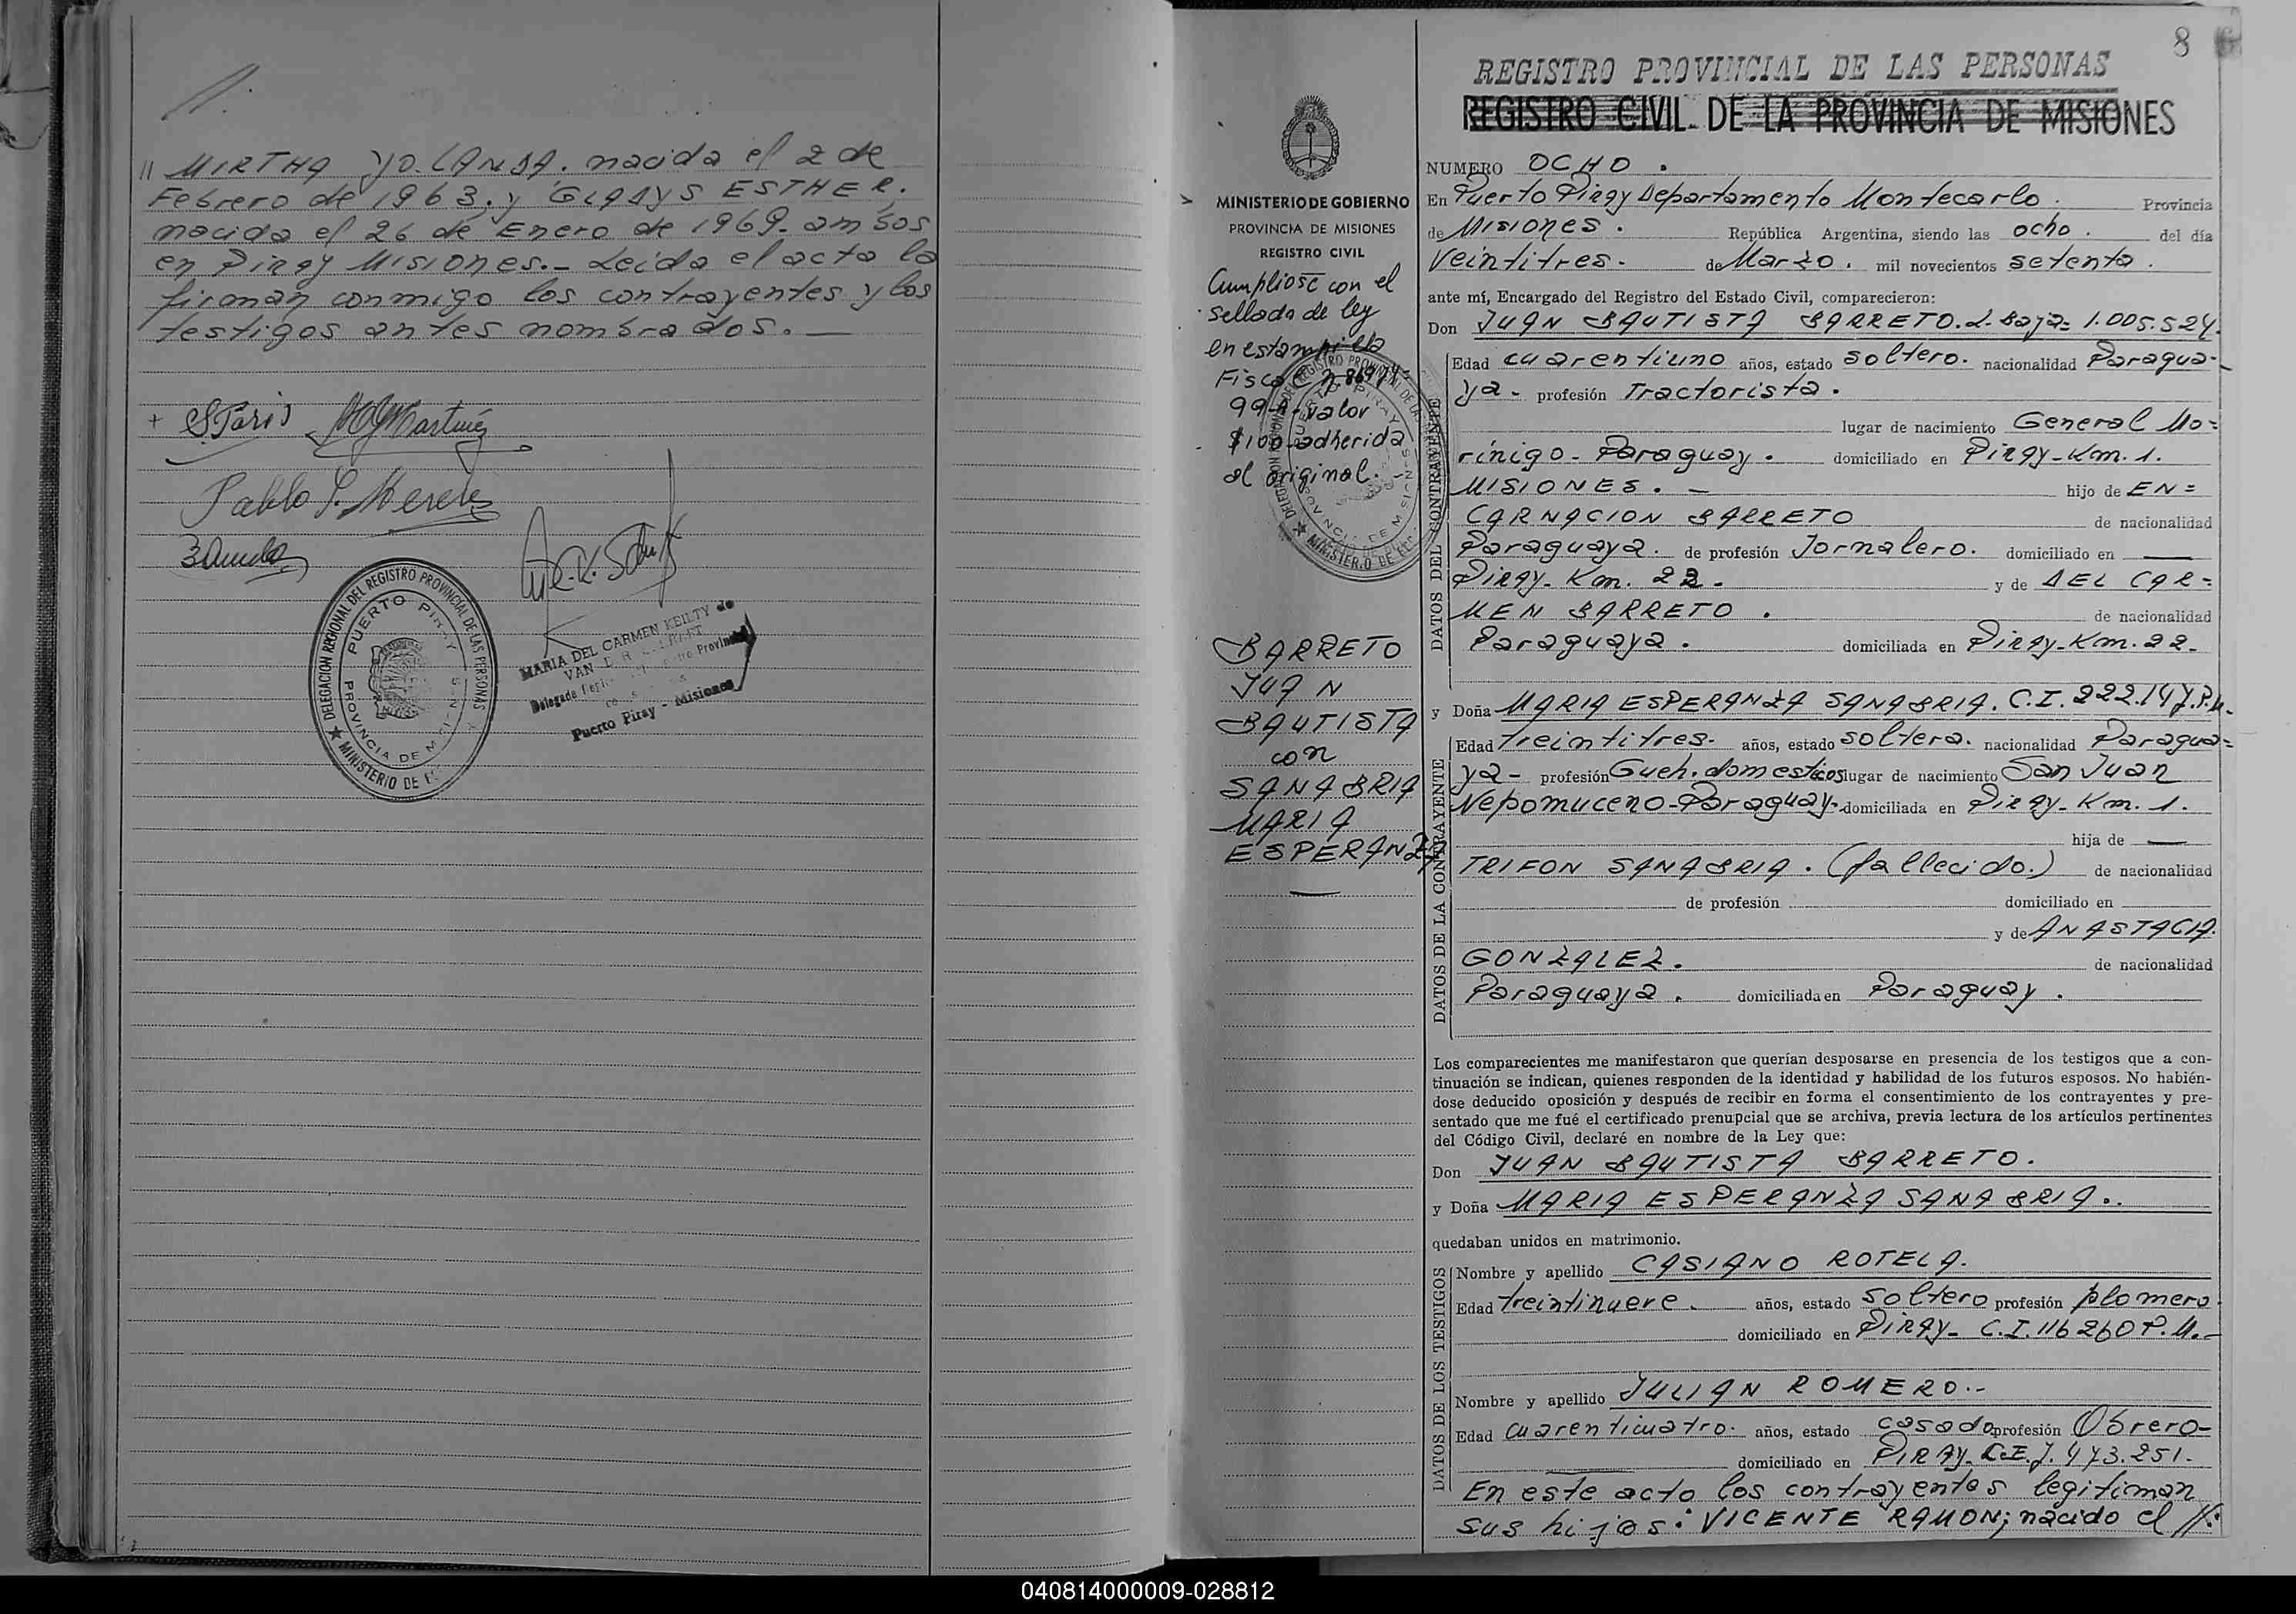 // MIRTHA YOLANDA. nacida el 2 de
Febrero de 1963. y GLADYS ESTHER.
nacida el 26 de Enero de 1969. ambos
en Piray Misiones.- Leida el acta la
firman conmigo los contrayentes y los
testigos antes nombrados. —
DELEGACION REGIONAL DEL REGISTRO PROVINCIAL DE LAS PERSONAS
PUERTO PIRAY
PROVINCIA DE MISIONES
MINISTERIO DE
MARIA DEL CARMEN KEILTY de
VAN DER
Puerto Piray - Misiones
8
REGISTRO PROVINCIAL DE LAS PERSONAS
REGISTRO CIVIL DE LA PROVINCIA DE MISIONES
MINISTERIO DE GOBIERNO
PROVINCIA DE MISIONES
REGISTRO CIVIL
Cumpliose con el
sellado de ley
en estampilla
Fiscal
99 valor
$100 adherida
al original.
BARRETO
JUAN
BAUTISTA
con
SANABRIA
MARIA
ESPERANZA
NUMERO OCHO.
En Puerto Piray Departamento Montecarlo. Provincia
de Misiones. República Argentina, siendo las ocho. del día
Veintitres. de Marzo. mil novecientos setenta.
ante mí, Encargado del Registro del Estado Civil, comparecieron:
Don JUAN BAUTISTA BARRETO. L. Baja= 1.005.524.
DATOS DEL CONTRAYENTE
Edad cuarentiuno años, estado soltero. nacionalidad Paragua-
ya- profesión Tractorista.
lugar de nacimiento General Mo=
rínigo- Paraguay. domiciliado en Piray-Km. 1.
MISIONES. — hijo de EN=
CARNACION BARRETO de nacionalidad
Paraguaya. de profesión Jornalero. domiciliado en —
Piray- Km. 22. y de DEL CAR=
MEN BARRETO. de nacionalidad
Paraguaya. domiciliada en Piray-Km. 22-
y Doña MARIA ESPERANZA SANABRIA. C.I. 222.147.P.M.
DATOS DE LA CONTRAYENTE
Edad treintitres. años, estado soltera. nacionalidad Paragua=
ya- profesión Queh. domesticos lugar de nacimiento San Juan
Nepomuceno-Paraguay- domiciliada en Piray-Km. 1.
hija de —
TRIFON SANABRIA. (fallecido.) de nacionalidad
de profesión domiciliado en
y de ANASTACIA.
GONZALEZ. de nacionalidad
Paraguaya. domiciliada en Paraguay.
Los comparecientes me manifestaron que querían desposarse en presencia de los testigos que a con-
tinuación se indican, quienes responden de la identidad y habilidad de los futuros esposos. No habién-
dose deducido oposición y después de recibir en forma el consentimiento de los contrayentes y pre-
sentado que me fué el certificado prenupcial que se archiva, previa lectura de los artículos pertinentes
del Código Civil, declaré en nombre de la Ley que:
Don JUAN BAUTISTA BARRETO.
y Doña MARIA ESPERANZA SANABRIA..
quedaban unidos en matrimonio.
DATOS DE LOS TESTIGOS
Nombre y apellido CASIANO ROTELA.
Edad treintinueve. años, estado soltero profesión plomero.
domiciliado en PIRAY- C.I. 116260 P.M.-
Nombre y apellido JULIAN ROMERO.-
Edad cuarenticuatro. años, estado casado profesión Obrero-
domiciliado en PIRAY. L.E. 7.473.251.
En este acto los contrayentes legitiman
sus hijos: VICENTE RAMON; nacido el //:
040814000009-028812